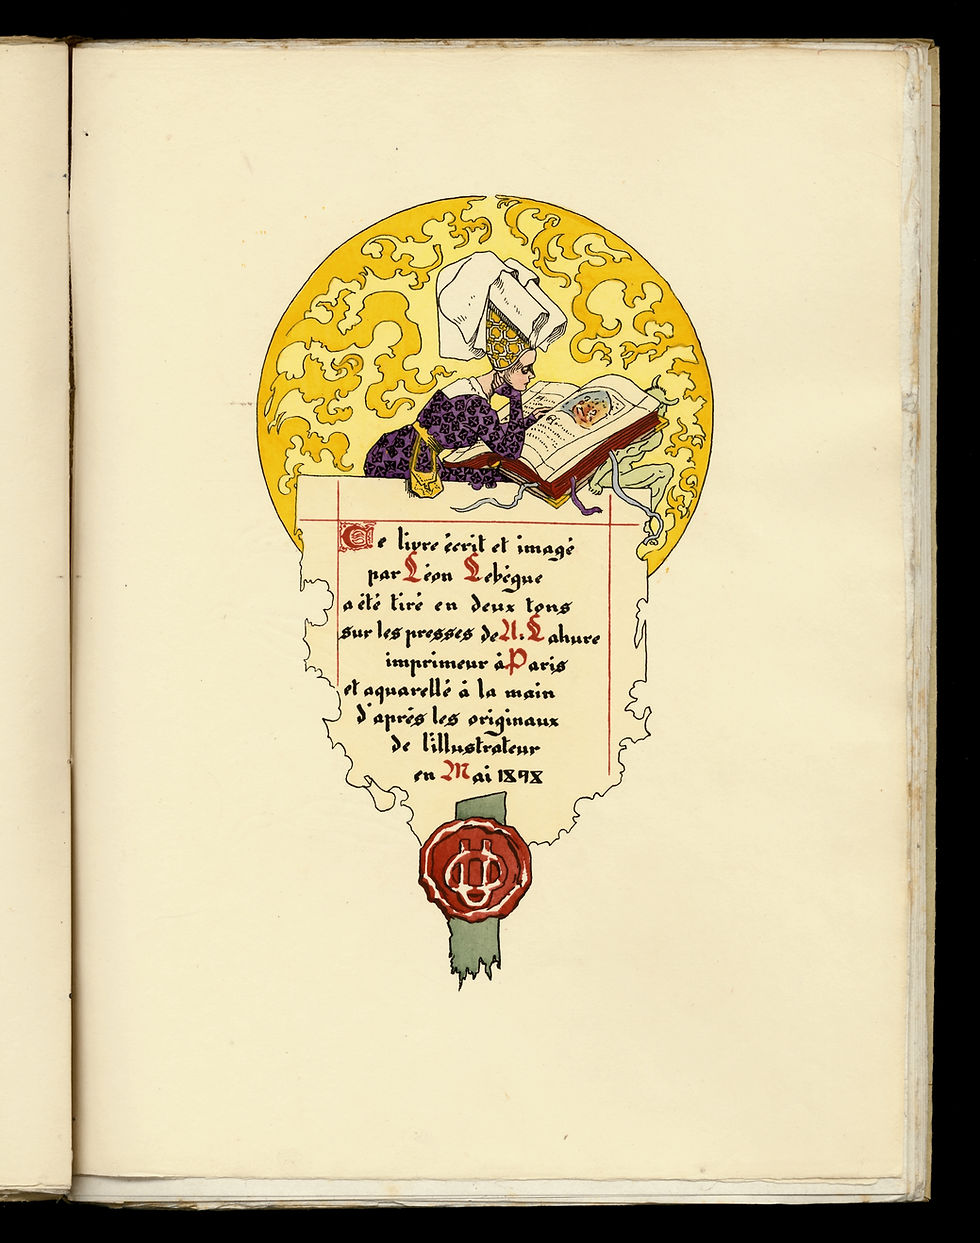 Ce livre écrit et imagé
par Léon Lebègue
a été tiré en deux tons
sur les presses de A. Lahure
imprimeur à Paris
et aquarellé à la main
d'après les originaux
de l'illustrateur
en Mai 1898